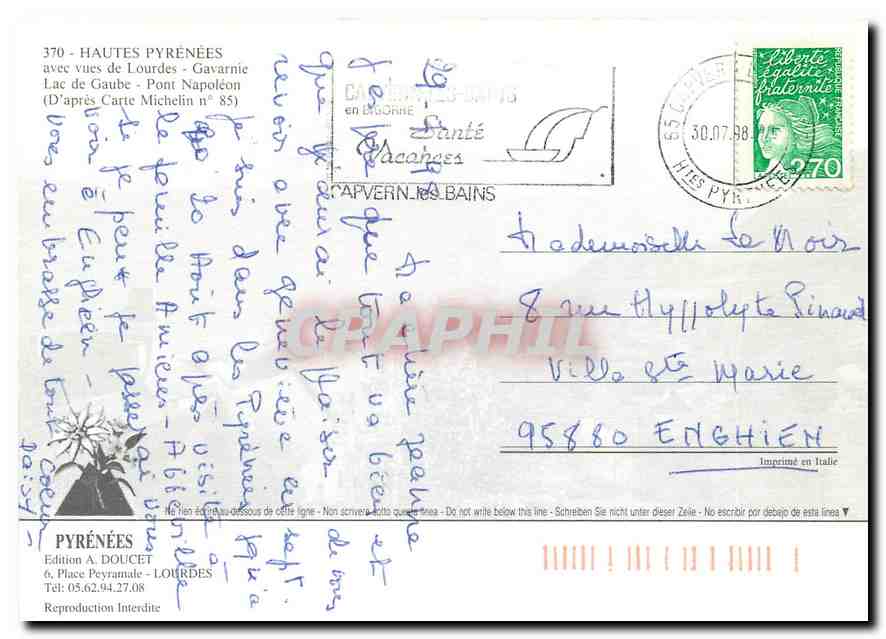 370 - HAUTES PYRÉNÉES
avec vues de Lourdes - Gavarnie
Lac de Gaube - Pont Napoléon
(D'après Carte Michelin n° 85)
CAPVERN-LES-BAINS
en BIGORRE
Santé
Vacances
CAPVERN-les-BAINS
65 CAPVERN
30.07.98
Htes PYRENEES
liberté
égalité
fraternité
REPUBLIQUE FRANÇAISE
2,70
29-7-98
Ma chère Jeanne
J'espère que tout va bien et
que j'aurai le plaisir de vous
revoir avec geneviève en sept.
je suis dans les Pyrénées jqu'à
20 Août après visite à
la famille Amiens - Abbeville
Si je peux je passerai vous
voir à Enghien -
vous embrasse de tout coeur
Daisy -
Mademoiselle Le Noir
8 rue Hyppolyte Pinaud
Villa Ste Marie
95880 ENGHIEN
CPAPHIL
Imprimé en Italie
Ne rien écrire au-dessous de cette ligne - Non scrivere sotto questa linea - Do not write below this line - Schreiben Sie nicht unter dieser Zeile - No escribir por debajo de esta linea ▼
PYRÉNÉES
Edition A. DOUCET
6, Place Peyramale - LOURDES
Tél: 05.62.94.27.08
Reproduction Interdite